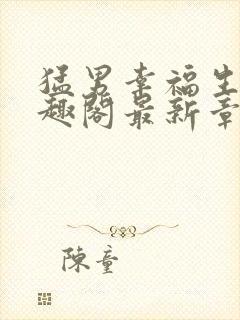 猛男幸福生
趣阁最新章
陈童